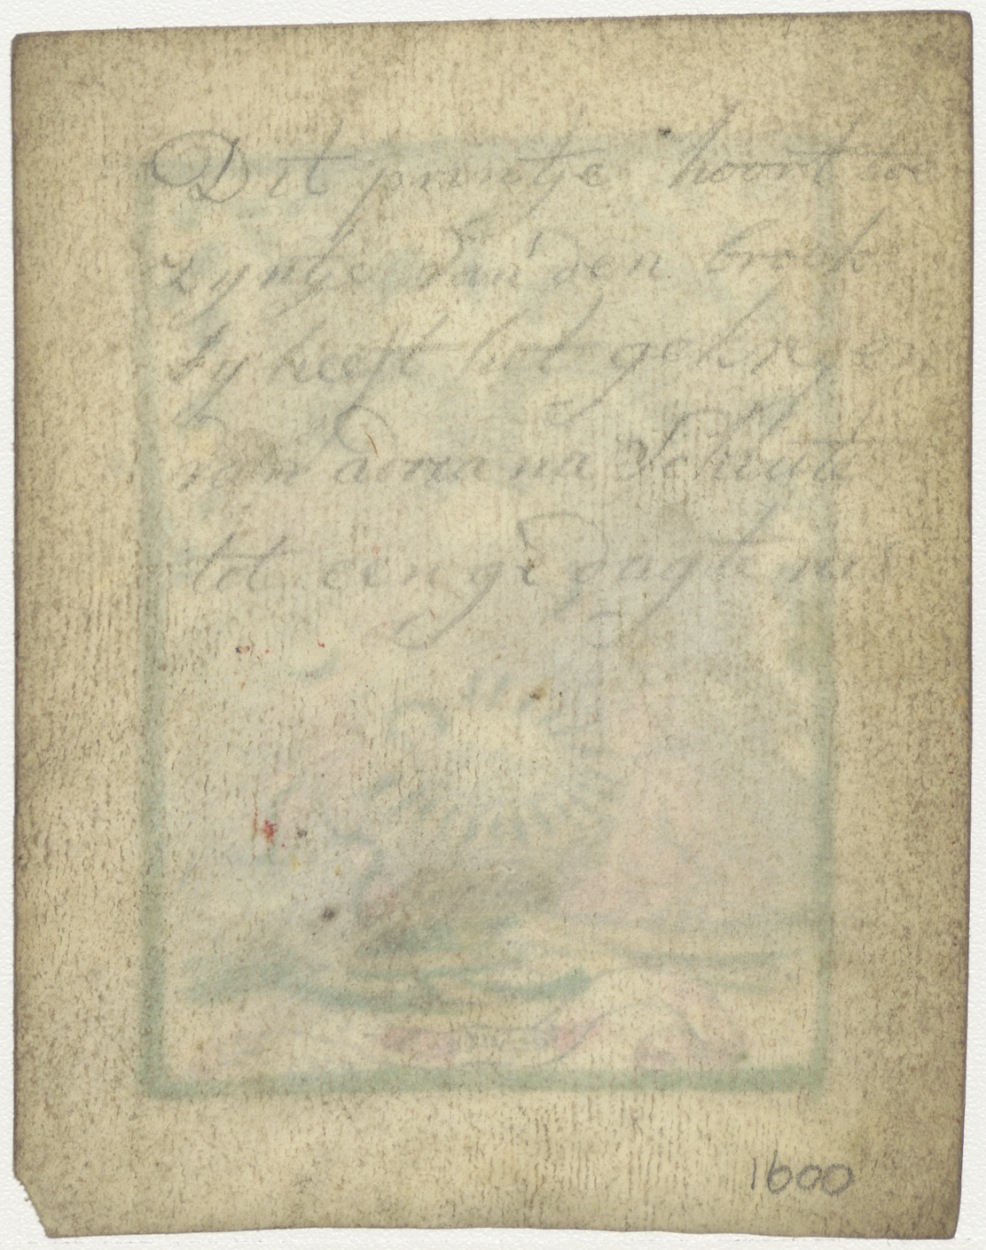 Dit printje hoort toe
zyntje van den broek
sy heeft het gekregen
van adoriana Schout
tot een gedagtenis
1600